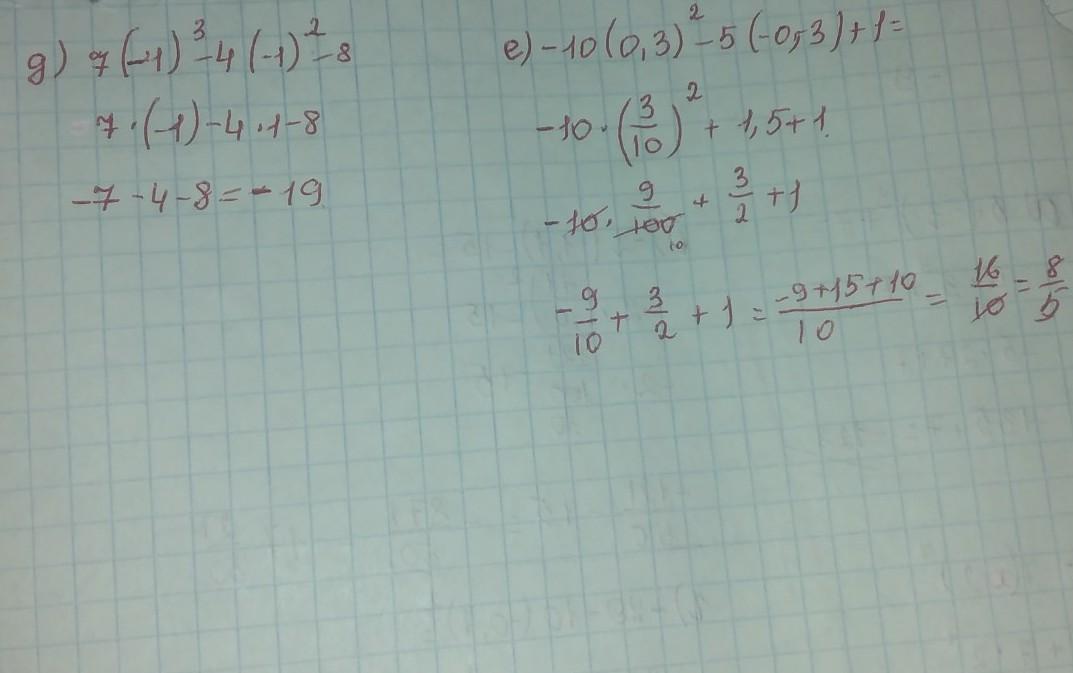 д) 7(-1)³-4(-1)²-8
7·(-1)-4·1-8
-7-4-8=-19
е) -10(0,3)²-5(-0,3)+1=
-10·(3/10)²+1,5+1.
-10·9/100 10+3/2+1
-9/10+3/2+1=(-9+15+10)/10=16/10=8/5